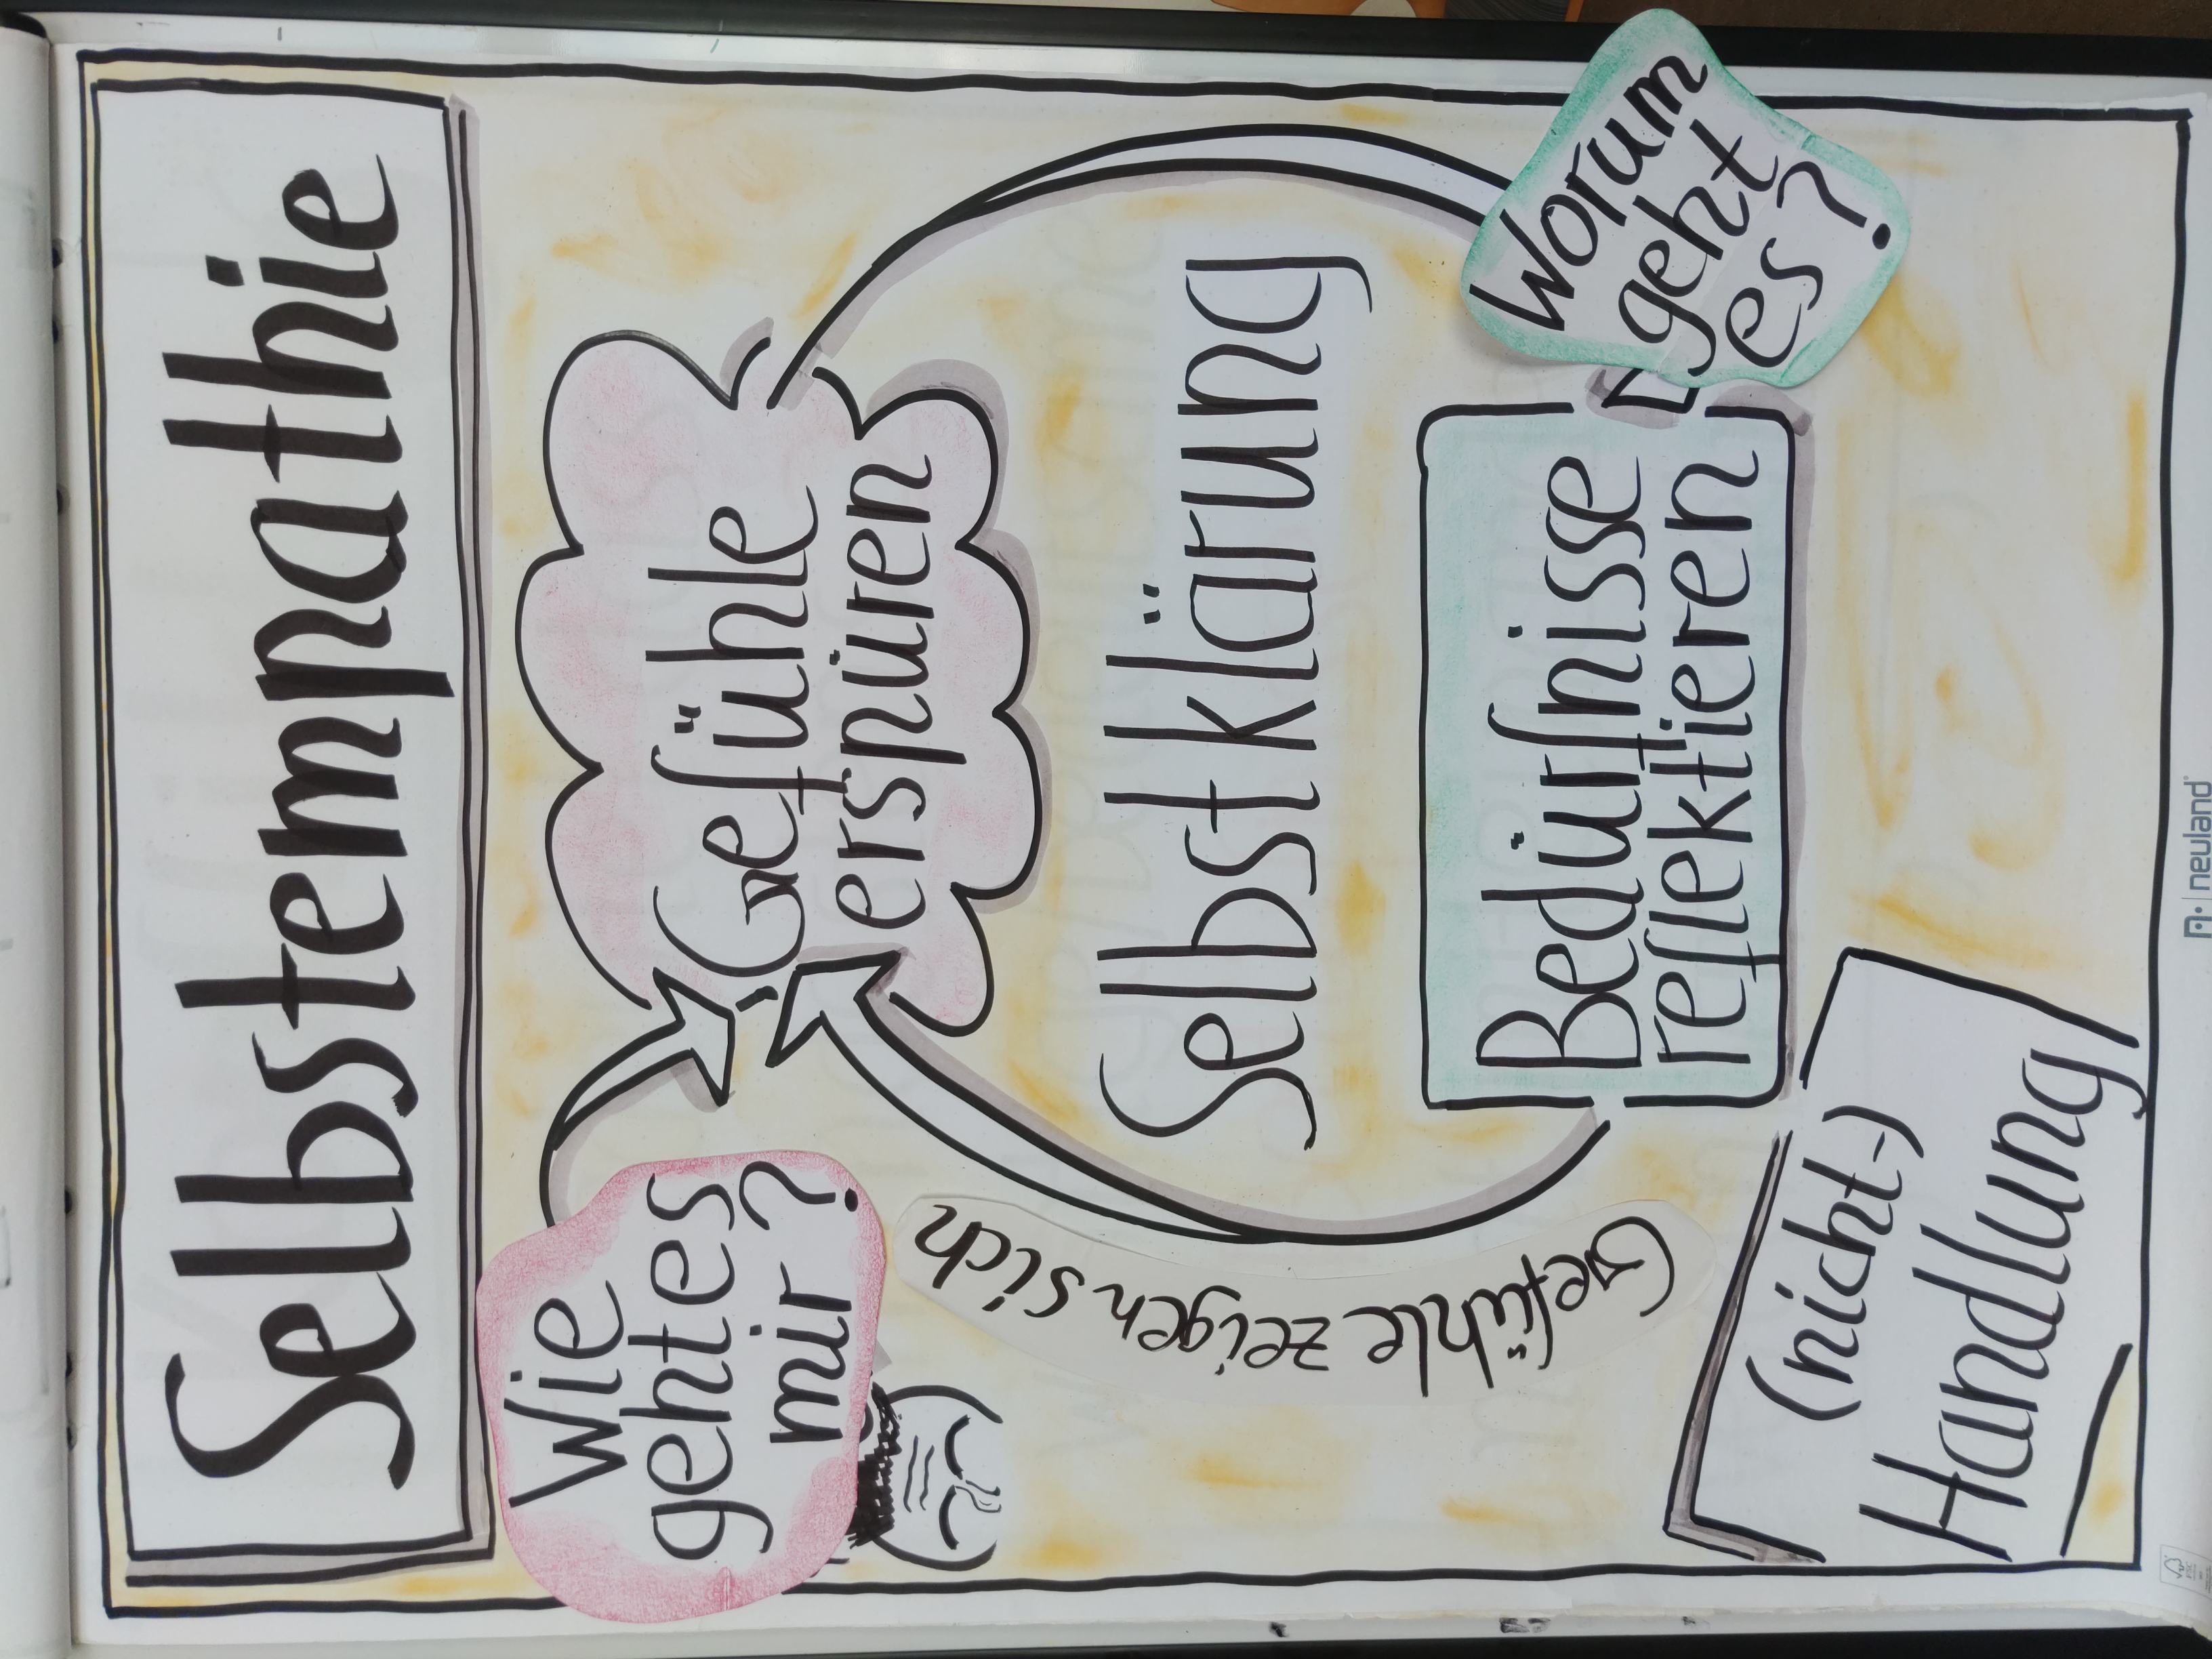 Selbstempathie
Wie
geht es
mir?
Gefühle
erspüren
Gefühle zeigen sich
Selbstklärung
Worum
geht
es?
Bedürfnisse
reflektieren
(nicht-)
Handlung
neuland